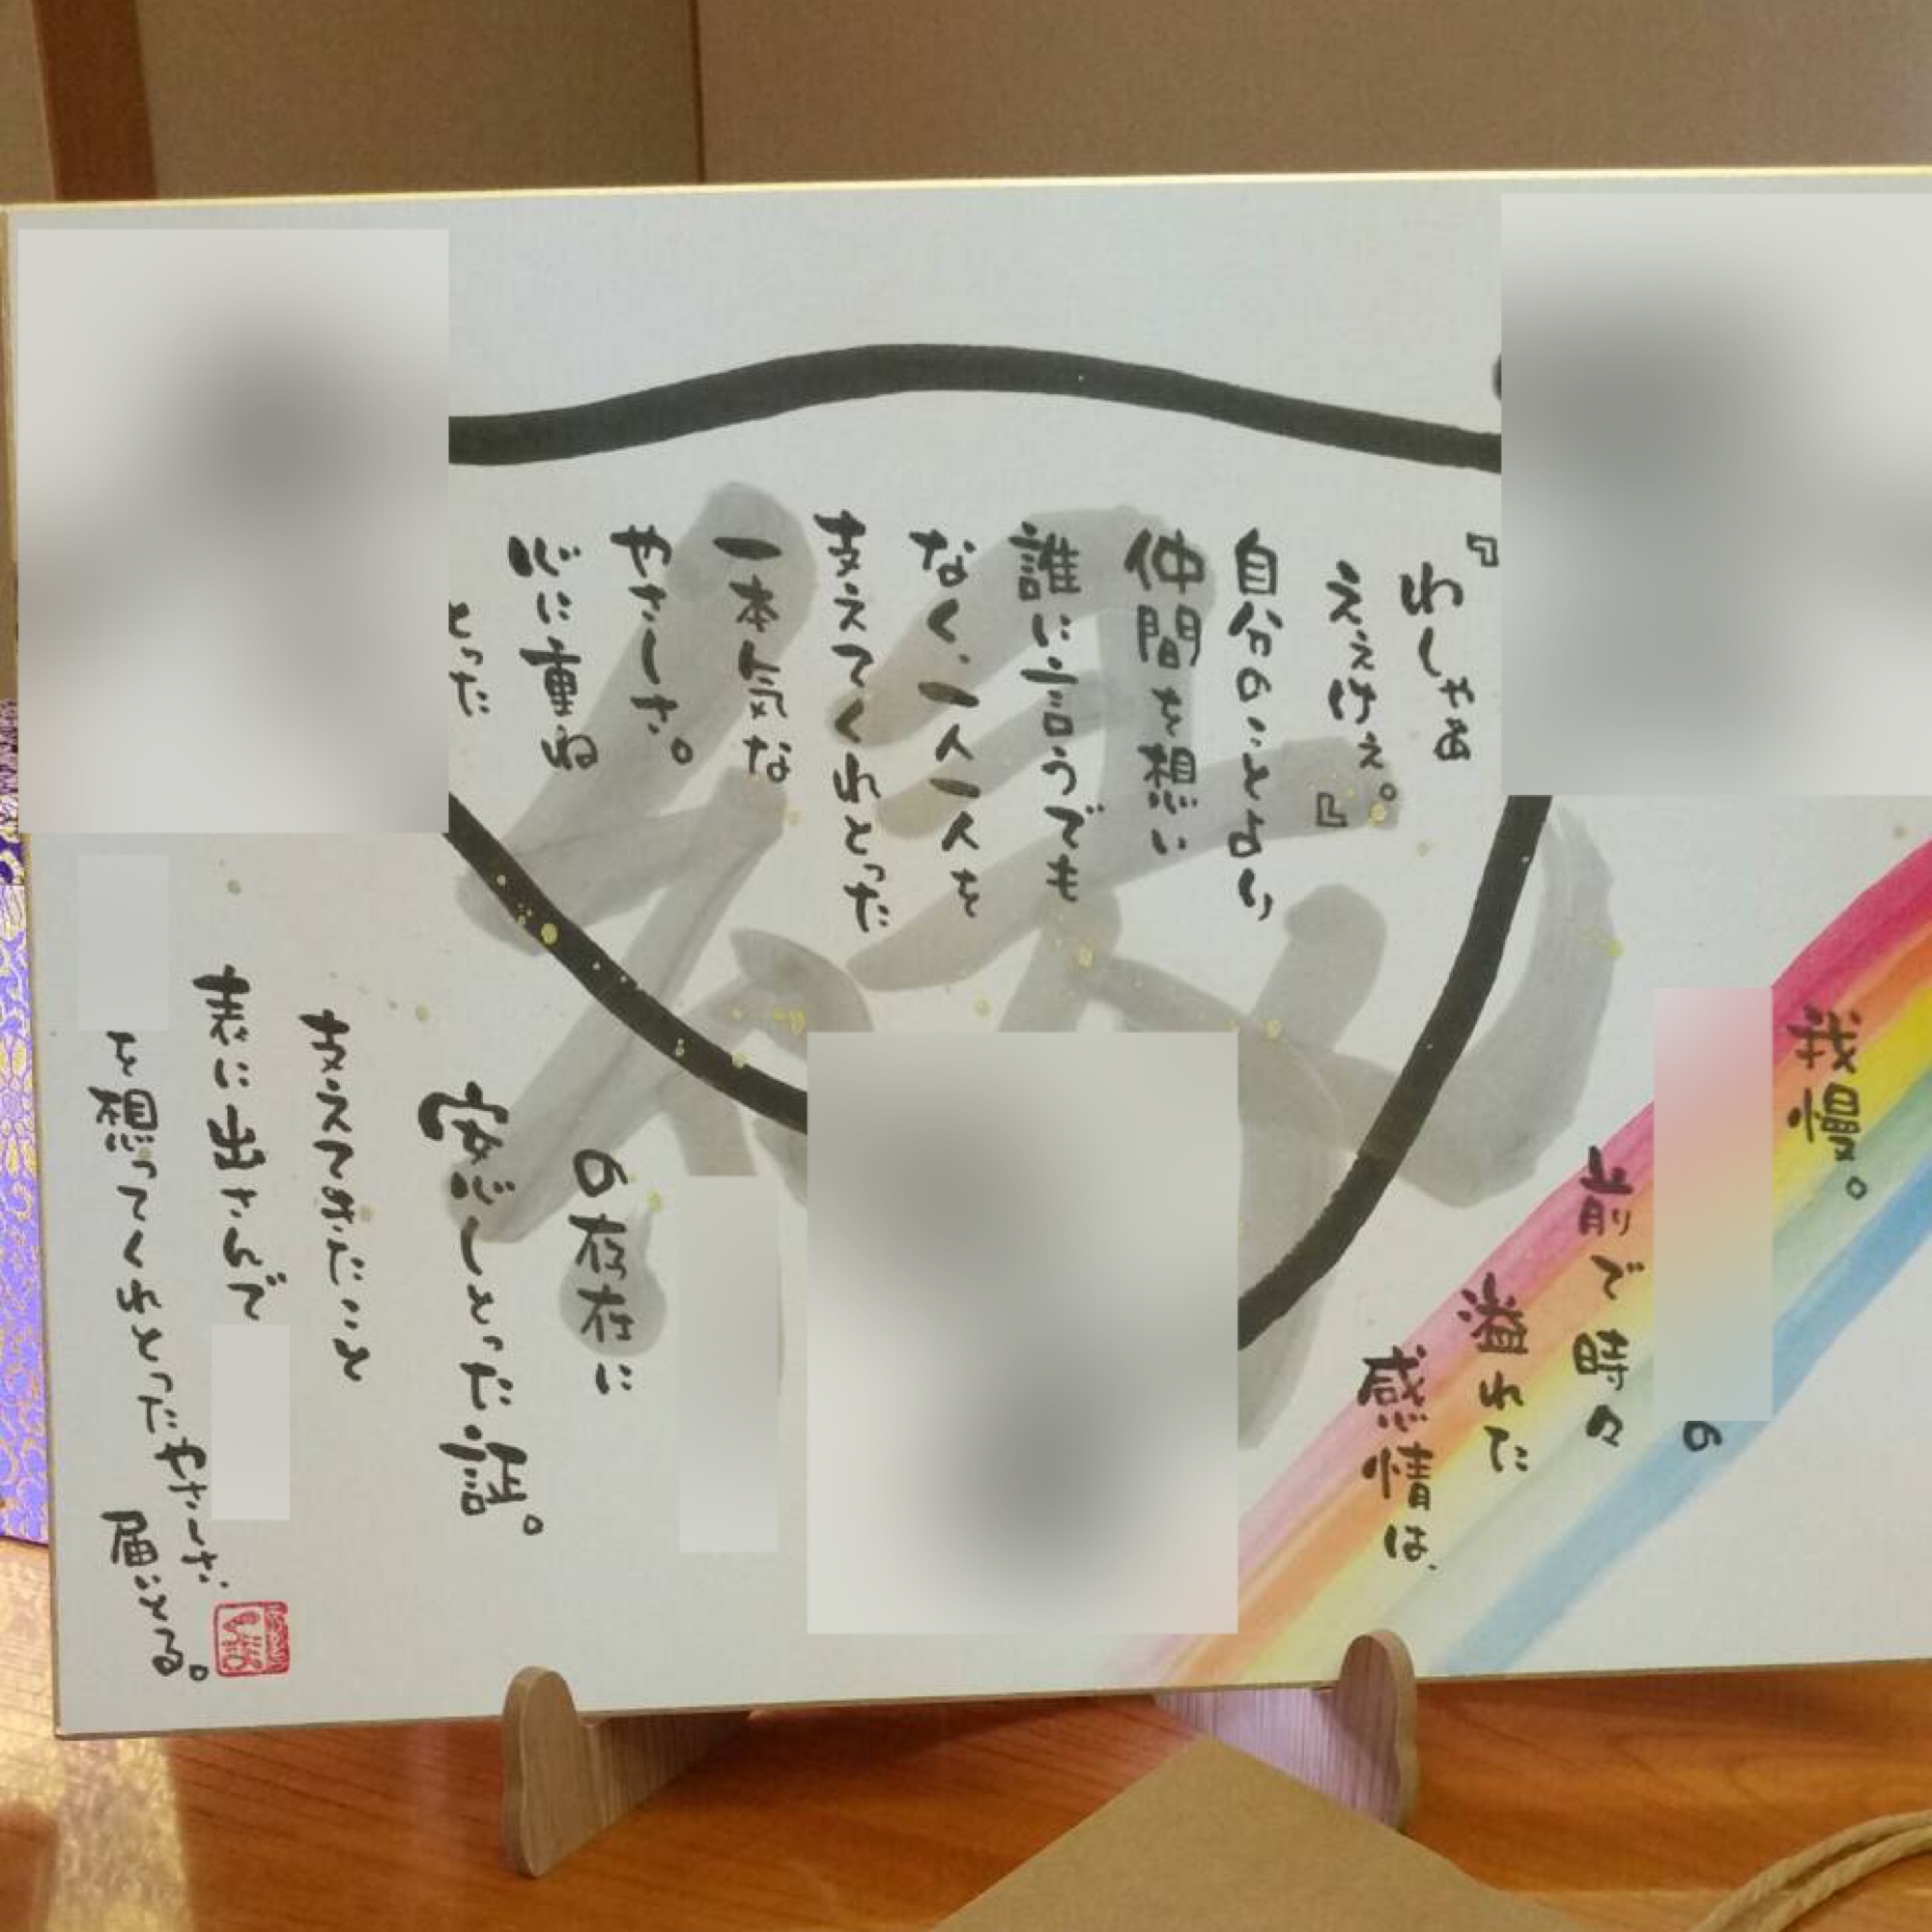 『わしゃあ
ええけぇ。』
自分のことより
仲間を想い
誰に言うでも
なく、一人一人を
支えてくれとった
一本気な
やさしさ。
心に重ね
とった
我慢。
の
前で時々
溢れた
感情は、
の存在に
安心しとった証。
支えてきたこと
表に出さんで
を想ってくれとったやさしさ、
届いとる。